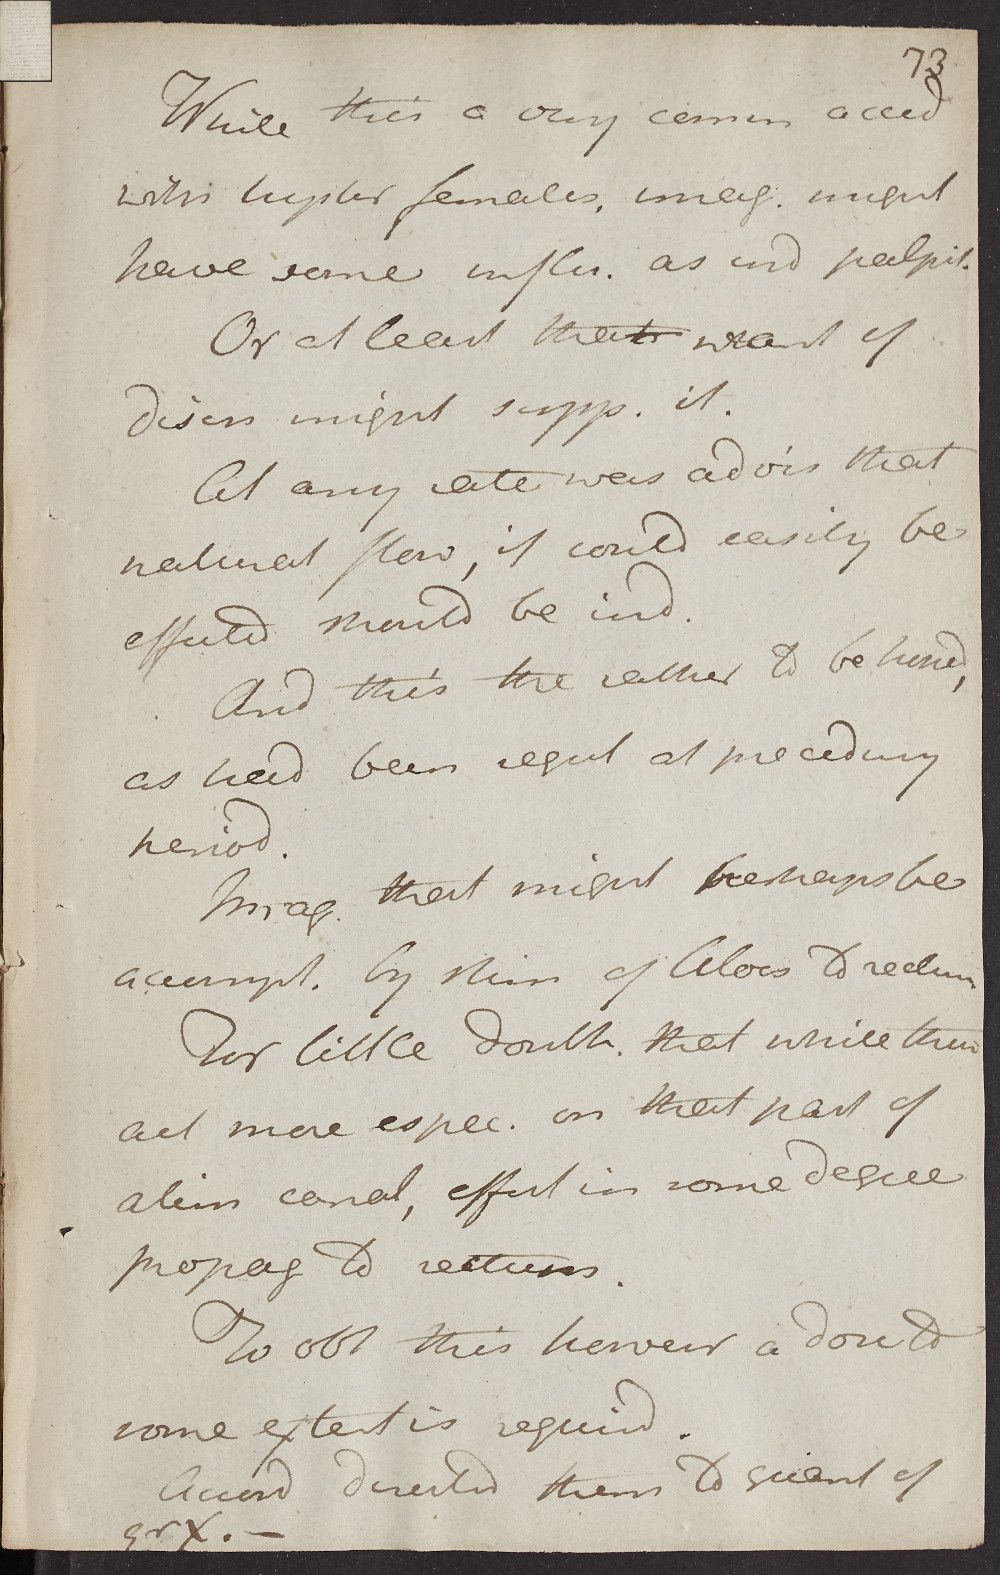 73
While this a very common acced
with hyster females, imag. might
have some influ. as ind palpit.
Or at least that want of
discn might supp. it.
At any rate was advis that
natural flow, if could easily be
effected should be ind.
And this the rather to be hoped,
as had been regul at preceding
period.
Imag. that might perhaps be
accompl. by stim of Aloes to rectum
For little doubt. that while these
act more espec. on that part of
alim canal, effect in some degree
propag to
To obt this however a dose to
some extent is requird.
Accord directed them to quant of
gr X. —